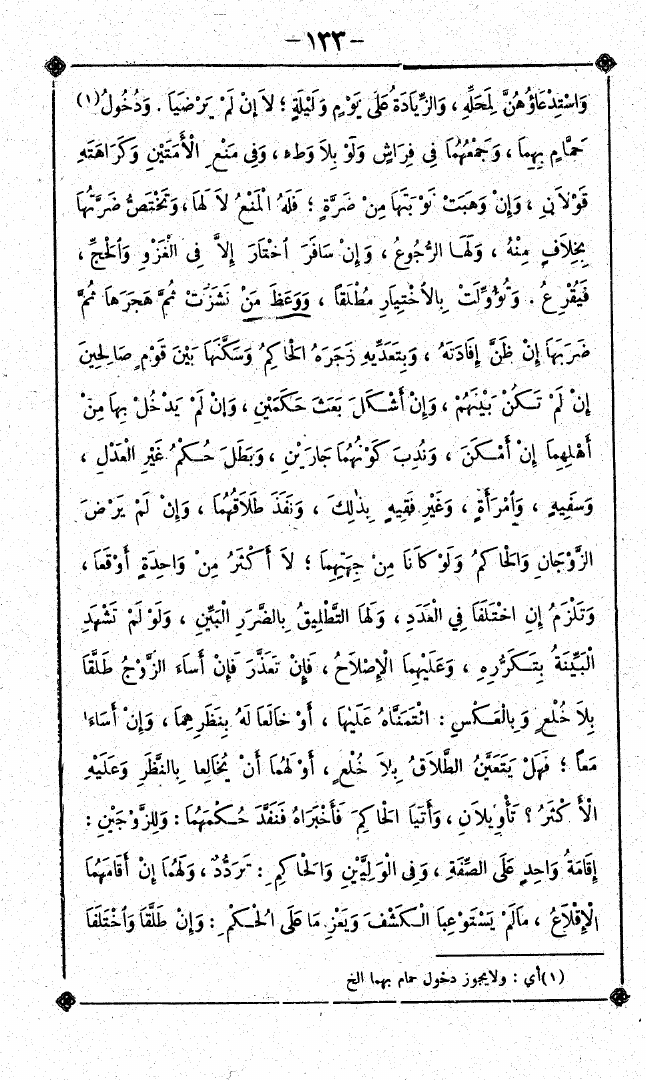 -١٣٣-
وَاسْتِدْعَاؤُهُنَّ لِمَحَلِّهِ ، وَالزِّيَادَةُ عَلَى يَوْمٍ وَلَيْلَةٍ ؛ لاَ إِنْ لَمْ يَرْضَيَا . وَدُخُولُ (١)
حَمَّامٍ بِهِمَا ، وَجَمْعُهُمَا فِي فِرَاشٍ وَلَوْ بِلاَ وَطْءٍ ، وَفِي مَنْعِ الْأَمَتَيْنِ وَكَرَاهَتِهِ
قَوْلاَنِ ، وَإِنْ وَهَبَتْ نَوْبَتَهَا مِنْ ضَرَّةٍ ؛ فَلَهُ الْمَنْعُ لاَ لَهَا ، وَتَخْتَصُّ ضَرَّتُهَا
بِخِلاَفِ مِنْهُ ، وَلَهَا الرُّجُوعُ ، وَإِنْ سَافَرَ اخْتَارَ إِلاَّ فِي الْغَزْوِ وَالْحَجِّ ،
فَيُقْرِعُ . وَتُؤُوِّلَتْ بِالاِخْتِيَارِ مُطْلَقًا ، وَوَعَظَ مَنْ نَشَزَتْ ثُمَّ هَجَرَهَا ثُمَّ
ضَرَبَهَا إِنْ ظَنَّ إِفَادَتَهُ ، وَبِتَعَدِّيهِ زَجَرَهُ الْحَاكِمُ وَسَكَّنَهَا بَيْنَ قَوْمٍ صَالِحِينَ
إِنْ لَمْ تَكُنْ بَيْنَهُمْ ، وَإِنْ أَشْكَلَ بَعَثَ حَكَمَيْنِ ، وَإِنْ لَمْ يَدْخُلْ بِهَا مِنْ
أَهْلِهِمَا إِنْ أَمْكَنَ ، وَنُدِبَ كَوْنُهُمَا جَارَيْنِ ، وَبَطَلَ حُكْمُ غَيْرِ الْعَدْلِ ،
وَسَفِيهٍ ، وَامْرَأَةٍ ، وَغَيْرِ فَقِيهٍ بِذٰلِكَ ، وَنَفَذَ طَلاَقُهُمَا ، وَإِنْ لَمْ يَرْضَ
الزَّوْجَانِ وَالْحَاكِمُ وَلَوْ كَانَا مِنْ جِهَتِهِمَا ؛ لاَ أَكْثَرُ مِنْ وَاحِدَةٍ أَوْقَعَا ،
وَتَلْزَمُ إِنِ اخْتَلَفَا فِي الْعَدَدِ ، وَلَهَا التَّطْلِيقُ بِالضَّرَرِ الْبَيِّنِ ، وَلَوْ لَمْ تَشْهَدِ
الْبَيِّنَةُ بِتَكَرُّرِهِ ، وَعَلَيْهِمَا الْإِصْلاَحُ ، فَإِنْ تَعَذَّرَ فَإِنْ أَسَاءَ الزَّوْجُ طَلَّقَا
بِلاَ خُلْعٍ وَبِالْعَكْسِ : ائْتَمَنَاهُ عَلَيْهَا ، أَوْ خَالَعَا لَهُ بِنَظَرِهِمَا ، وَإِنْ أَسَاءَا
مَعًا ؛ فَهَلْ يَتَعَيَّنُ الطَّلاَقُ بِلاَ خُلْعٍ ، أَوْ لَهُمَا أَنْ يُخَالِعَا بِالنَّظَرِ وَعَلَيْهِ
الْأَكْثَرُ ؟ تَأْوِيلاَنِ ، وَأَتَيَا الْحَاكِمَ فَأَخْبَرَاهُ فَنَفَّذَ حُكْمَهُمَا : وَلِلزَّوْجَيْنِ :
إِقَامَةُ وَاحِدٍ عَلَى الصِّفَةِ ، وَفِي الْوَلِيَّيْنِ وَالْحَاكِمِ : تَرَدُّدٌ ، وَلَهُمَا إِنْ أَقَامَهُمَا
الْإِقْلاَعُ ، مَالَمْ يَسْتَوْعِبَا الْكَشْفَ وَيَعْزِمَا عَلَى الْحُكْمِ : وَإِنْ طَلَّقَا وَاخْتَلَفَا
(١) أي : ولايجوز دخول حمام بهما الخ